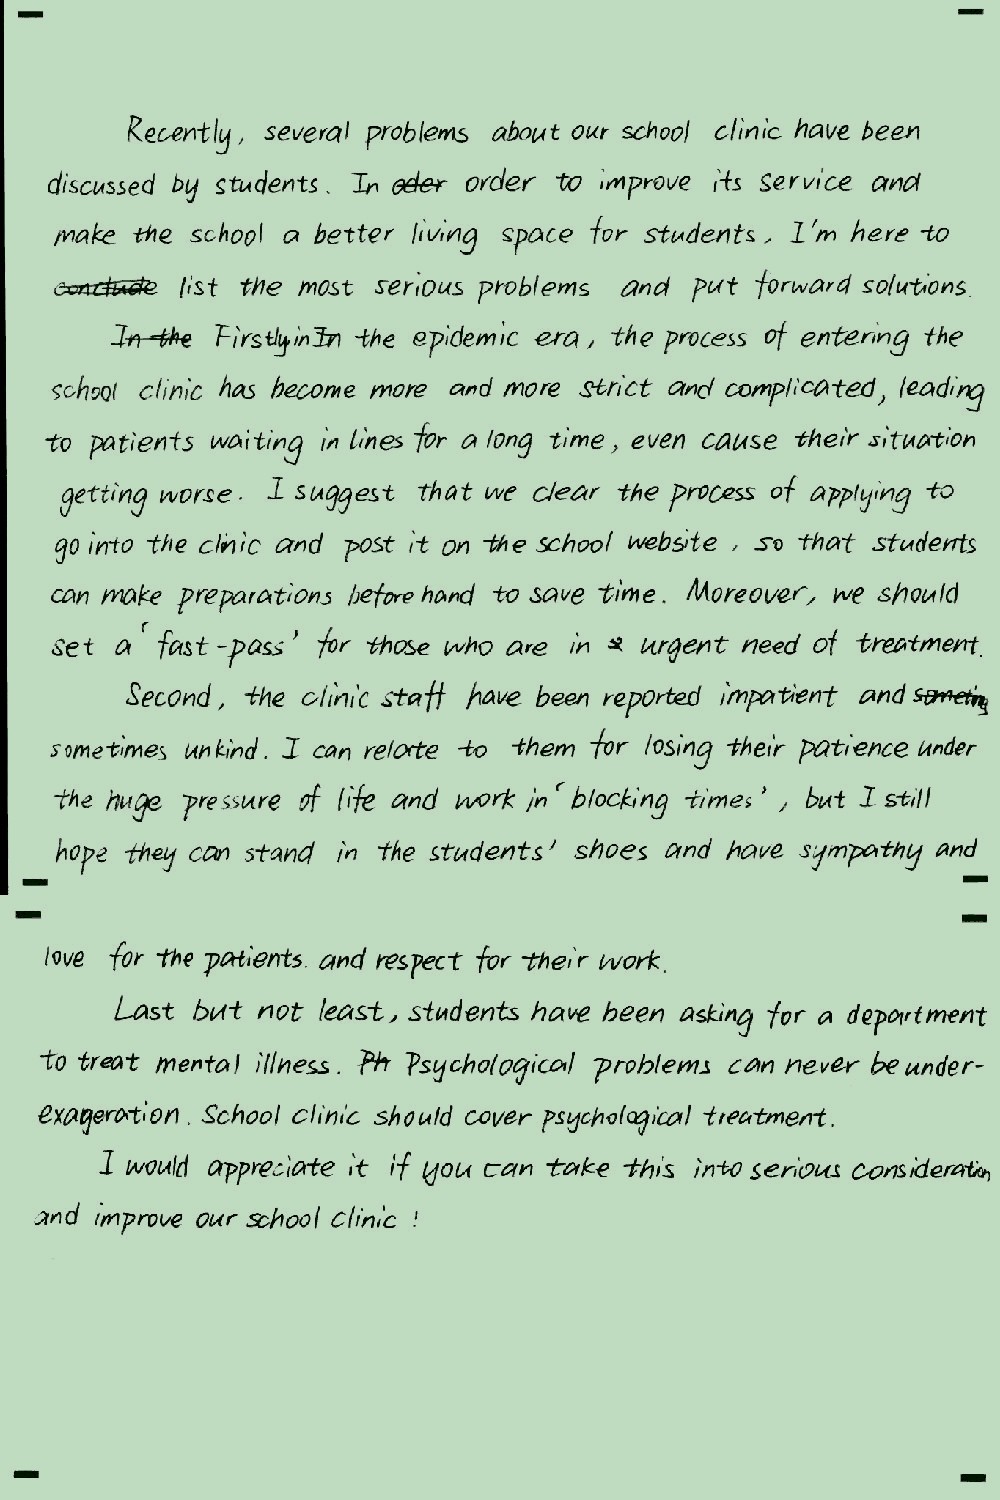 Recently, several problems about our school clinic have been
discussed by students. In oder order to improve its service and
make the school a better living space for students, I'm here to
conclude list the most serious problems and put forward solutions.
In the Firstly, in In the epidemic era, the process of entering the
school clinic has become more and more strict and complicated, leading
to patients waiting in lines for a long time, even cause their situation
getting worse. I suggest that we clear the process of applying to
go into the clinic and post it on the school website, so that students
can make preparations beforehand to save time. Moreover, we should
set a 'fast-pass' for those who are in urgent need of treatment.
Second, the clinic staff have been reported impatient and
sometimes unkind. I can relate to them for losing their patience under
the huge pressure of life and work in 'blocking times', but I still
hope they can stand in the students' shoes and have sympathy and
love for the patients. and respect for their work.
Last but not least, students have been asking for a department
to treat mental illness. Ph Psychological problems can never be under-
exageration. School clinic should cover psychological treatment.
I would appreciate it if you can take this into serious consideration
and improve our school clinic!